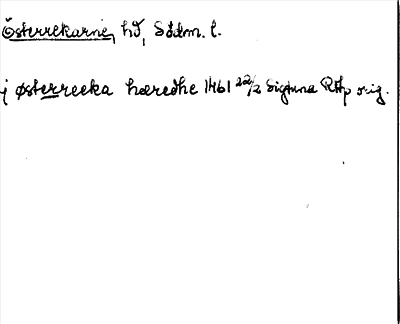 Österrekarne, hd, Södm. l.
j østerrecka hæredhe 1461 22/2 Sigtuna RAp orig.